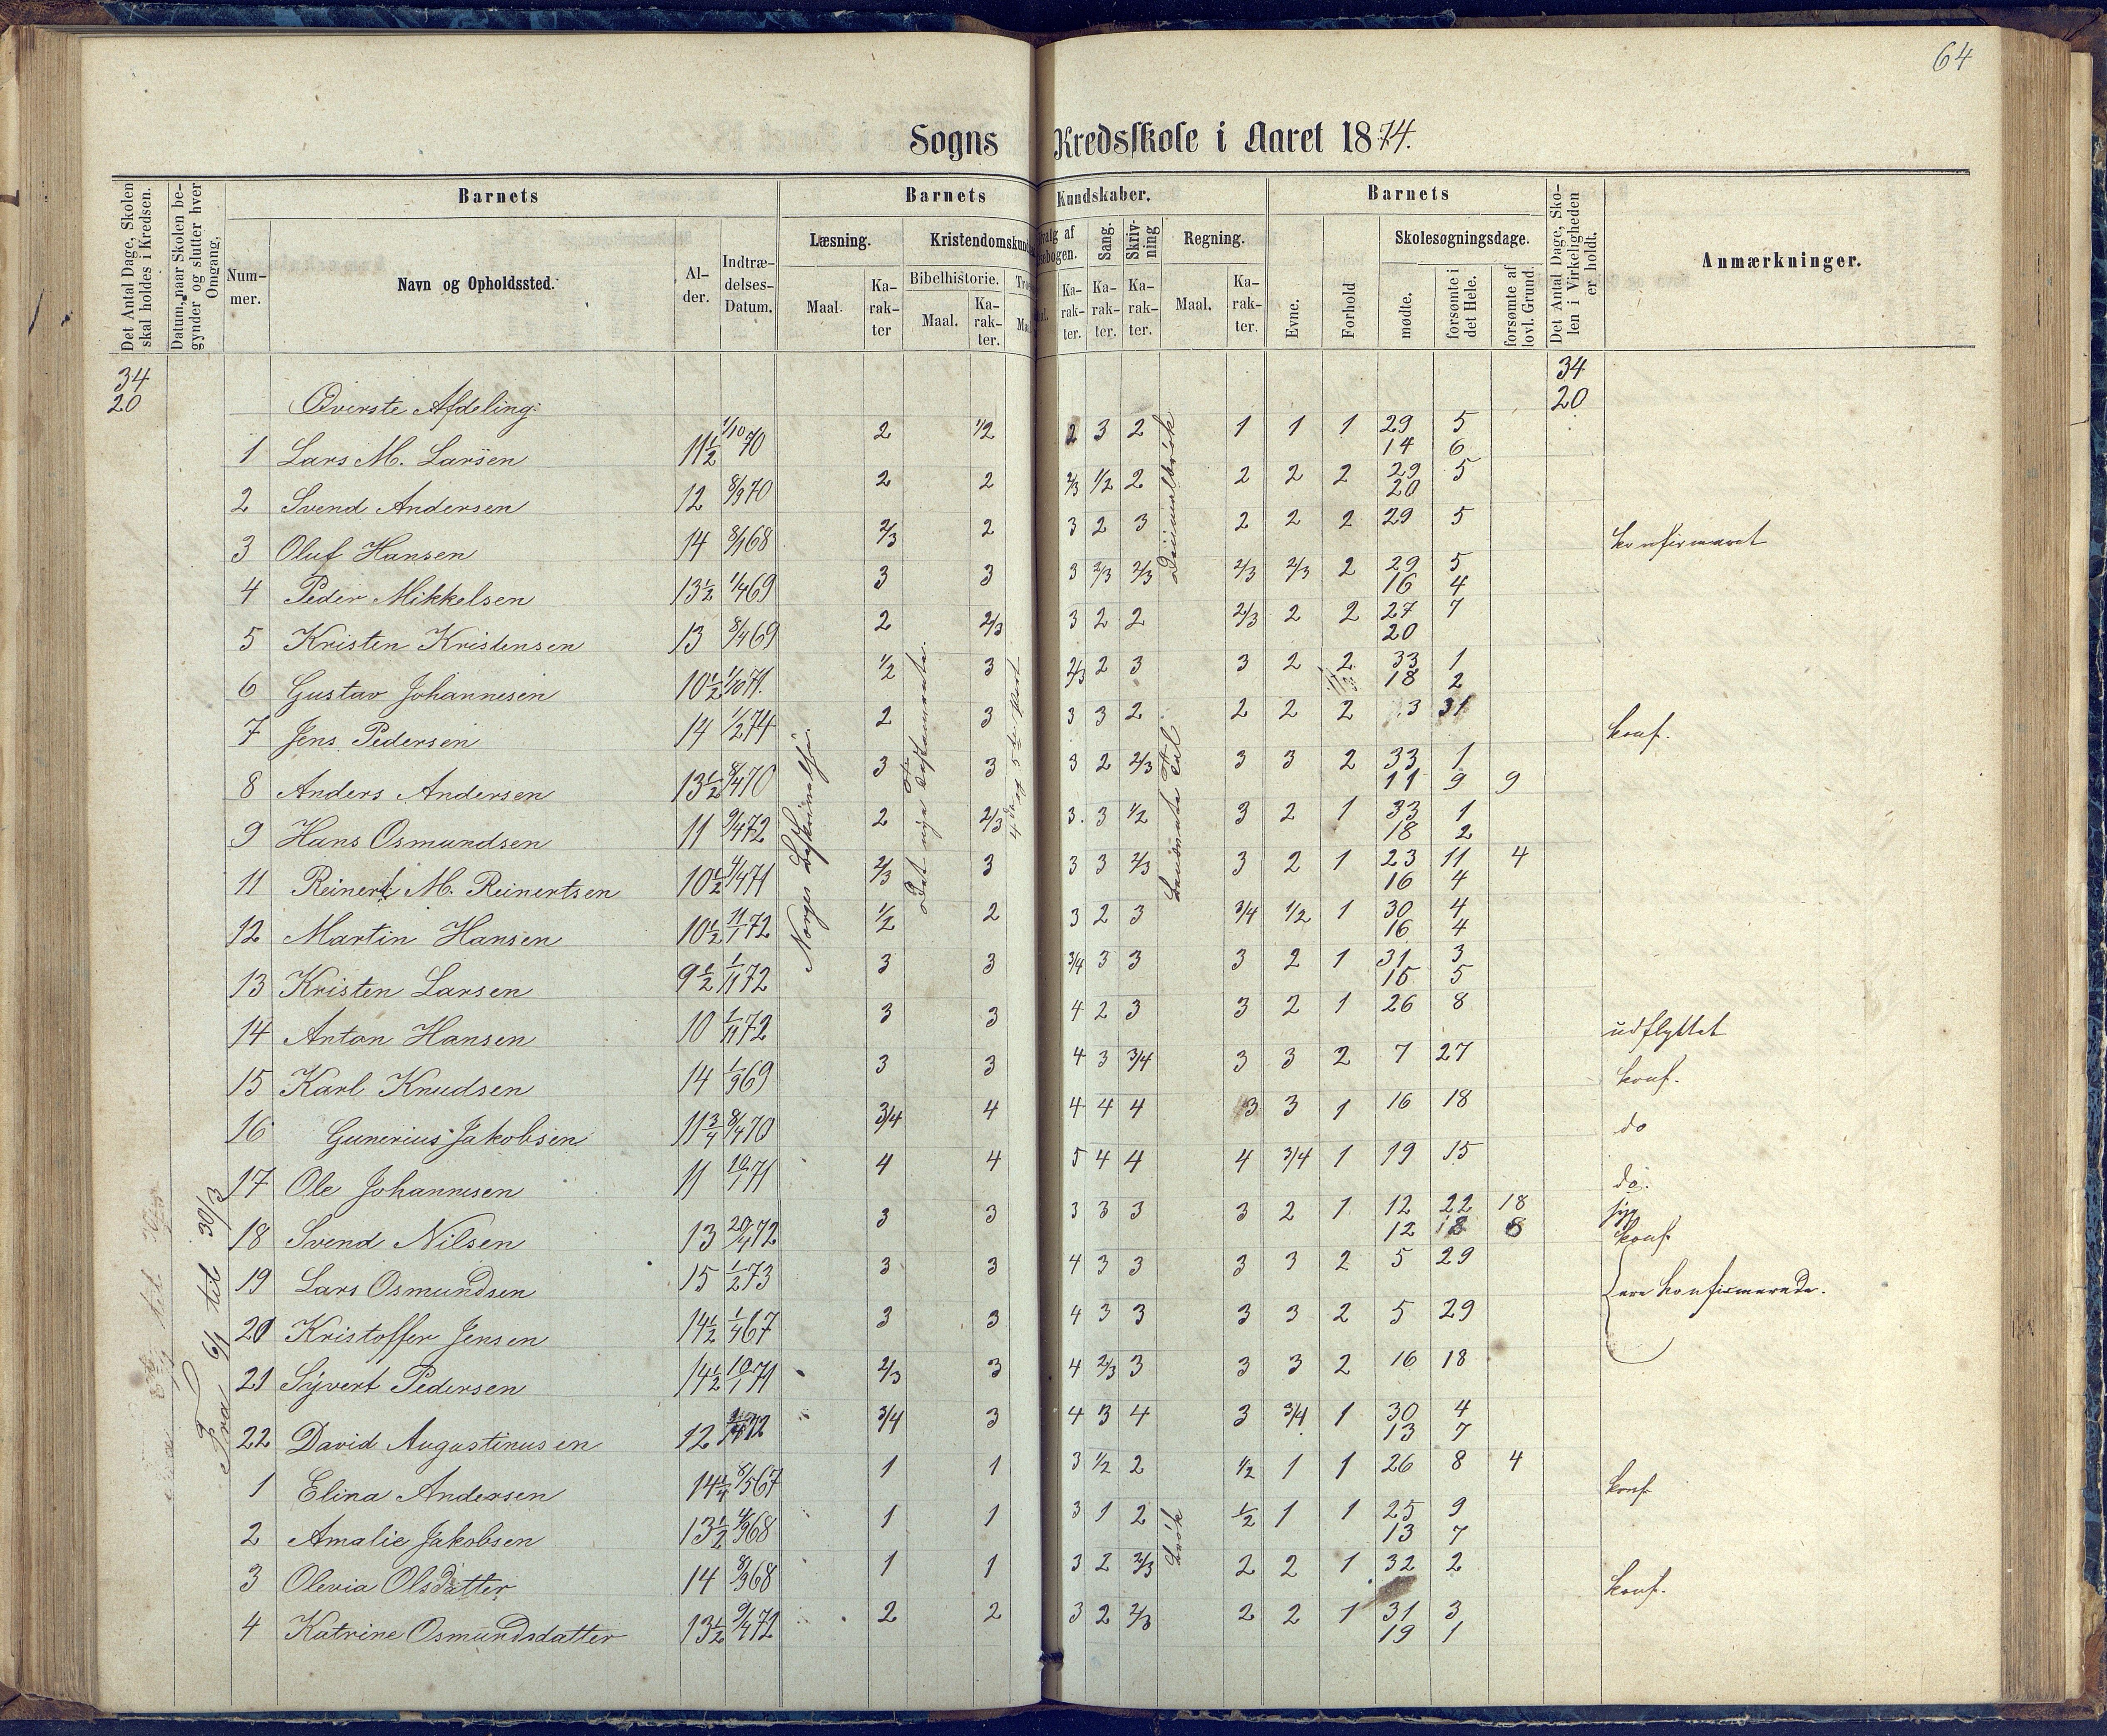 64
Sogns Kredsskole i Aaret 1874.
Det Antal Dage, Skolen skal holdes i Kredsen.
Datum, naar Skolen begynder og slutter hver Omgang.
Barnets
Nummer.
Navn og Opholdssted.
Alder.
Indtrædelses-Datum.
Barnets Kundskaber.
Læsning.
Maal.
Karakter
Bibelhistorie.
Maal.
Karakter.
Sang.
Karakter.
Skrivning
Karakter.
Regning.
Maal.
Karakter.
Barnets
Evne.
Forhold
Skolesøgningsdage.
mødte.
forsømte i det Hele.
forsømte af lovl. Grund.
Det Antal Dage, Skolen i Virkeligheden er holdt.
Anmærkninger.
34 34
20 Øverste Afdeling: 20
1 Lars M. Larsen 11½ 1/10 70 2 1/2 2 3 2 1 1 1 29 5
14 6
2 Svend Andersen 12 8/9 70 2 2 2/3 1/2 2 2 2 2 29 5
20
3 Oluf Hansen 14 8/1 68 2/3 2 3 2 3 2 2 2 29 5 konfirmeret
4 Peder Mikkelsen 13½ 1/4 69 3 3 3 2/3 2/3 2/3 2/3 2 29 5
16 4
5 Kristen Kristensen 13 8/4 69 2 2/3 3 2 2 2/3 2 2 27 7
20
6 Gustav Johannesen 10½ 1/10 71. 1/2 3 2/3 2 3 3 2 2 33 1
18 2
7 Jens Pedersen 14 1/2 74 2 3 3 3 2 2 2 2 3 31 konf.
8 Anders Andersen 13½ 8/4 70 3 3 3 2 2/3 3 3 2 33 1
11 9 9
9 Hans Osmundsen 11 9/4 72 2 2/3 3. 3 1/2 3 2 1 33 1
18 2
11 Reinert M. Reinertsen 10½ 4/4 71 2/3 3 3 3 2/3 3 2 1 23 11 4
16 4
12 Martin Hansen 10½ 11/1 72 1/2 2 3 2 3 3/4 1/2 1 30 4
16 4
13 Kristen Larsen 9½ 1/11 72 3 3 3/4 3 3 3 2 1 31 3
15 5
14 Anton Hansen 10 1/11 72 3 3 4 2 3 3 2 1 26 8 udflyttet
15 Karl Knudsen 14 1/9 69 3 3 4 3 3/4 3 3 2 7 27 konf.
16 Gunerius Jakobsen 11¾ 8/4 70 3/4 4 4 4 4 3 3 1 16 18 do
17 Ole Johannesen 11 10/1 71 4 4 5 4 4 4 3/4 1 19 15 do.
18 Svend Nilsen 13 20/4 72 3 3 3 3 3 3 2 1 12 22 18 syg
12 18 8 konf.
19 Lars Osmundsen 15 1/2 73 3 3 4 3 3 3 3 2 5 29 ere konfirmerede.
20 Kristoffer Jensen 14½ 1/4 67 3 3 4 3 3 3 3 2 5 29
21 Syvert Pedersen 14½ 10/1 71 2/3 3 4 2/3 3 3 3 2 16 18
22 David Augustinusen 12 72 3/4 3 4 3 4 3 3/4 1 30 4
13 7
1 Elina Andersen 14¼ 8/5 67 1 1 3 1/2 2 1/2 1 1 26 8 4 konf
2 Amalie Jakobsen 13½ 4/9 68 1 1 3 1 2 1/2 1 1 25 9
13 7
3 Olevia Olsdatter 14 8/9 68 1 1 3 2 2/3 2 2 1 32 2 konf.
4 Katrine Osmundsdatter 13½ 9/4 72 2 2 3 2 2/3 2 2 1 31 3
19 1
Fra 6/1 til 30/3
Det nye Testamente.
4de og 5te Part
Decimalbrøk
Benævnte Tal
Brøk